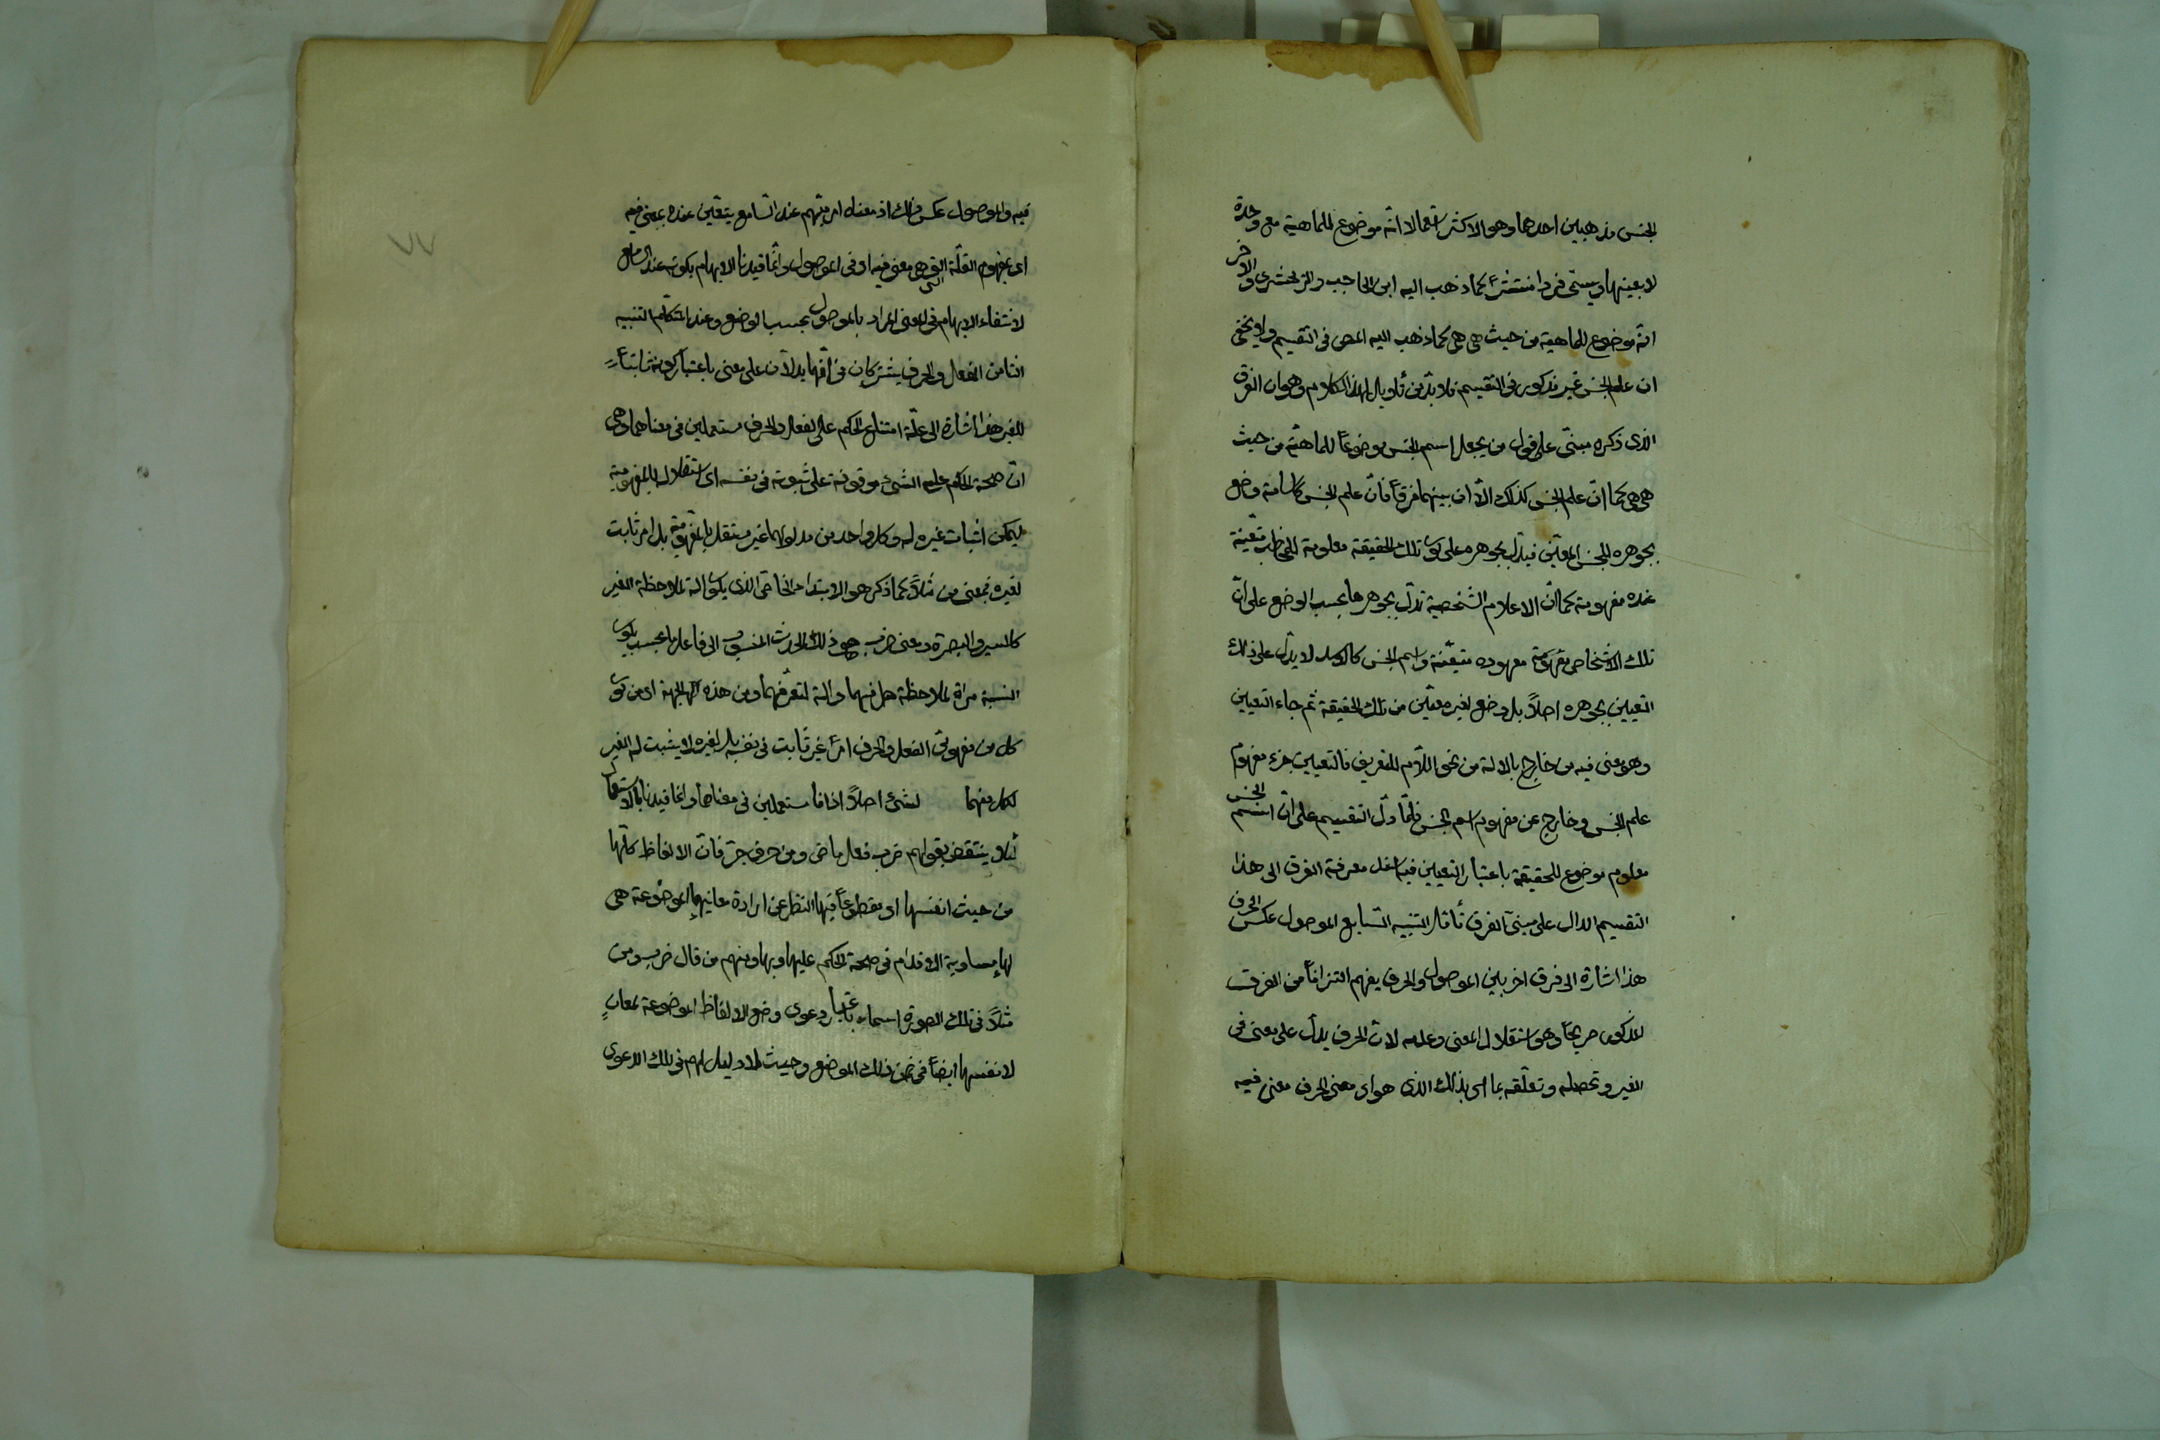 الجنس مذهبين احدهما وهو الاكثر استعمالا انّه موضوع للماهية مع وحدة
لا بعينها ويسمّى فردا منتشرا كما ذهب اليه ابن الحاجب والزمخشرى والاخر
انّه موضوع للماهية من حيث هى هى كما ذهب اليه المص فى التقسيم ولا يخفى
ان علم الجنس غير مذكور فى التقسيم فلا بدّ من تأويل لهذا الكلام وهو ان الفرق
الذى ذكره مبنىّ على قول من يجعل اسم الجنس موضوعاً للماهيّة من حيث
هى هى كما انّ علم الجنس كذلك الاّ ان بينهما فرقاً فانّ علم الجنس كاسامة وضع
بجوهره للجنس المعيّن فيدلّ بجوهره على كون تلك الحقيقة معلومة للمخاطب متعيّنة
عنده مفهومة كما انّ الاعلام الشخصية تدلّ بجوهرها بحسب الوضع على انّ
تلك الاشخاص مفهومة معهوده متعيّنة واسم الجنس كالاسد لا يدلّ على ذلك
التعيين بجوهره اصلاً بل وضع لغير معيّن من تلك الحقيقة ثم جاء التعيين
وهو معنى فيه من خارج بالالة من نحو اللاّم للتعريف فالتعيين جزء مفهوم
علم الجنس وخارج عن مفهوم اسم الجنس فلمّا دلّ التقسيم على انّ اسم الجنس
معلوم موضوع للحقيقة باعتبار التعيين فيه معرفة الفرق الى هذا
التقسيم الدال على مبنىّ الفرق التنبيه السّابع الموصول عكس الحرف
هذا اشارة الى فرق اخر بين الموصول والحرف يفهم التزاماً من الفرق
المذكور صريحاً وهو استقلال المعنى وعدمه لانّ الحرف يدلّ على معنى فى
الغير وتحصله وتعلّقه بما اى بذلك الذى هو اى معنى الحرف معنى فيه
٧٧
فيه والموصول عكس ذلك اذ معناه امر مبهم عند السّامع يتعيّن عنده بمعنى فيه
اى بمفهوم الصّلة التى هى معنى فيه اى فى الموصول وانّما قيدنا الابهام بكونه عند السامع
لانتفاء الابهام فى المعنى المراد بالموصول بحسب الوضع وعند المتكلّم التنبيه
الثامن الفعل والحرف يشتركان فى انّهما يدلاّن على معنى باعتبار كونه ثابتاً
للغير هذا اشارة الى علّة امتناع الحكم على الفعل والحرف مستعملين فى معناهما وهى
انّ صحّة الحكم على الشىء موقوفة على ثبوته فى نفسه اى استقلاله بالمفهومية
ليمكن اثبات غيره له وكل واحد من مدلولهما غير مستقل بالمفهومية بل امر ثابت
لغيره فمعنى من مثلاً كما ذكر هو الابتداء الخاصّ الذى يكون الة لملاحظة الغير
كالسير والبصرة ومعنى ضرب هو ذلك الحدث المنسوب الى فاعل ما بحسب كون
النسبة مراة لملاحظة طرفيهما والة لتعرّفهما ومن هذه الجهة اى من كون
كل من مفهومى الفعل والحرف امراً غير ثابت فى نفسه بل لغيره لا يثبت له الغير
لكل منهما لشئ اصلاً اذا كانا مستعملين فى معناهما وانما قيدنا بالاستعمال
لئلا ينتقض بقولهم ضرب فعل ماض ومن حرف جرّ فانّ الالفاظ كلّها
من حيث انفسها اى مقطوعاً فيها النظر عن ارادة معانيها الموضوعة هى
لها متساوية الاقدام فى صحة الحكم عليها وبها ومنهم من قال ضرب ومن
مثلاً فى تلك الصورة اسماء باعتبار دعوى وضع الالفاظ الموضوعة لمعانٍ
لانفسها ايضاً فى ضمن ذلك الوضع وحيث لا دليل لهم فى تلك الدعوى